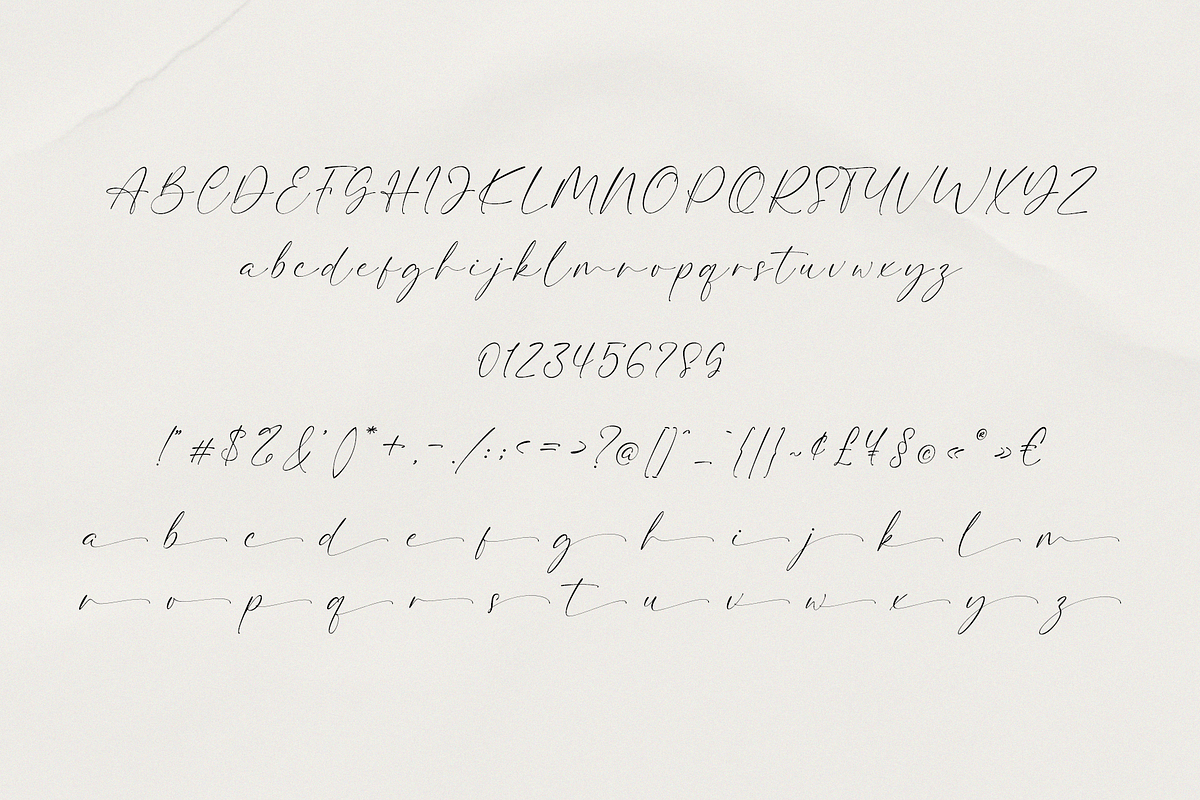 ABCDEFGHIJKLMNOPQRSTUVWXYZ
abcdefghijklmnopqrstuvwxyz
0123456789
!"#$%&'()*+,-./:;<=>?@[]^_`{|}~¢£¥§©«®»€
a b c d e f g h i j k l m
n o p q r s t u v w x y z